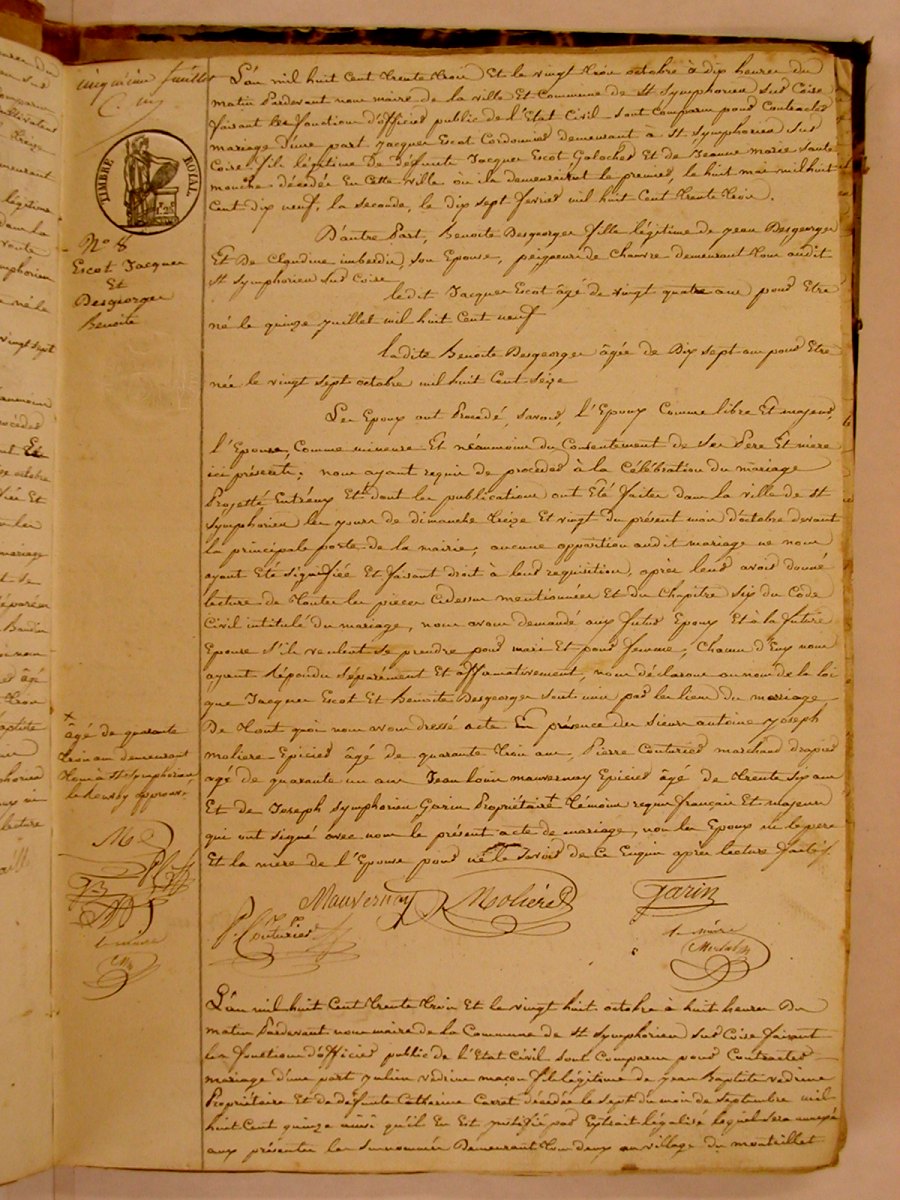 cinquième feuillet
TIMBRE ROYAL
N° 8
Escot Jacques
Et
Desgeorges
Benoite
L'an mil huit Cent trente trois Et le vingt trois octobre à dix heures du
matin Pardevant nous maire de la ville Et Commune de St Symphorien sur Coise
faisant les fonctions d'officier public de l'Etat Civil sont Comparus pour Contracter
mariage d'une part Jacques Escot Cordonnier demeurant à St Symphorien sur
Coise fils légitime De défunts Jacques Escot Galocher Et de Jeanne marie
mouche décédés En cette ville où ils demeuraient le premier, le huit mai mil huit
Cent dix neuf, la seconde, le dix sept février mil huit Cent trente trois.
D'autre Part, Benoite Desgeorges fille légitime de Jean Desgeorges
Et De Claudine imberdis, son Epouse, peigneur de Chanvre demeurant tous audit
St Symphorien sur Coise
ledit Jacques Escot âgé de vingt quatre ans pour Etre
né le quinze Juillet mil huit Cent neuf
ladite Benoite Desgeorges âgée de Dix sept ans pour Etre
née le vingt sept octobre mil huit Cent seize
Les Epoux ont Procédé, savoir, l'Epoux Comme libre Et majeur,
l'Epouse, Comme mineure Et néanmoins du Consentement de Ses Père Et mère
ici présents; nous ayant requis de procéder à la Célébration du mariage
Projetté Entréux Et dont les publications ont Eté faites dans la ville de St
Symphorien les jours de dimanche treize Et vingt du présent mois d'octobre devant
la principale porte de la mairie; aucune opposition audit mariage ne nous
ayant Eté signifiée Et faisant droit à leur requisition, après leur avoir donné
lecture de toutes les pièces Cidessus mentionnées Et du Chapitre six du Code
Civil intitulé du mariage, nous avons demandé aux futur Epoux Et à la future
Epouse s'ils veulent se prendre pour mari Et pour femme; Chacun d'Eux nous
ayant Répondu séparément Et affirmativement, nous déclarons au nom de la loi
que Jacques Escot Et Benoite Desgeorges sont unis par les liens du mariage
De tout quoi nous avons dressé acte En présence des Sieurs antoine Joseph
moliere Epicier âgé de quarante trois ans, Pierre Couturier marchand drapier
agé de quarante un ans Jean louis mauvernay Epicier âgé de trente six ans
Et de Joseph Symphorien Garin Propriétaire + témoins requis français Et majeurs
qui ont signé avec nous le présent acte de mariage, non les Epoux ni le père
Et la mère de l'Epouse pour ne le savoir de Ce Enquis après lecture faite.
+
âgé de quarante
trois ans demeurant
tous à St Symphorien
le renvoy approuvé
Mauvernay
Molière
Garin
P. Couturier
L'an mil huit Cent trente trois Et le vingt huit octobre à huit heures Du
matin Pardevant nous maire de la Commune de St Symphorien sur Coise faisant
les fonctions d'officier public de l'Etat Civil sont Comparus pour Contracter
mariage d'une part Julien vedrine maçon fils légitime de Jean Baptiste vedrine
Propriétaire Et de défunte Catherine Carret décédée le sept du mois de Septembre mil
huit Cent quinze ainsi qu'il En Est justifié par Extrait légalisé lequel sera annexé
aux présentes les surnommés Demeurant tous deux au village du monteillet